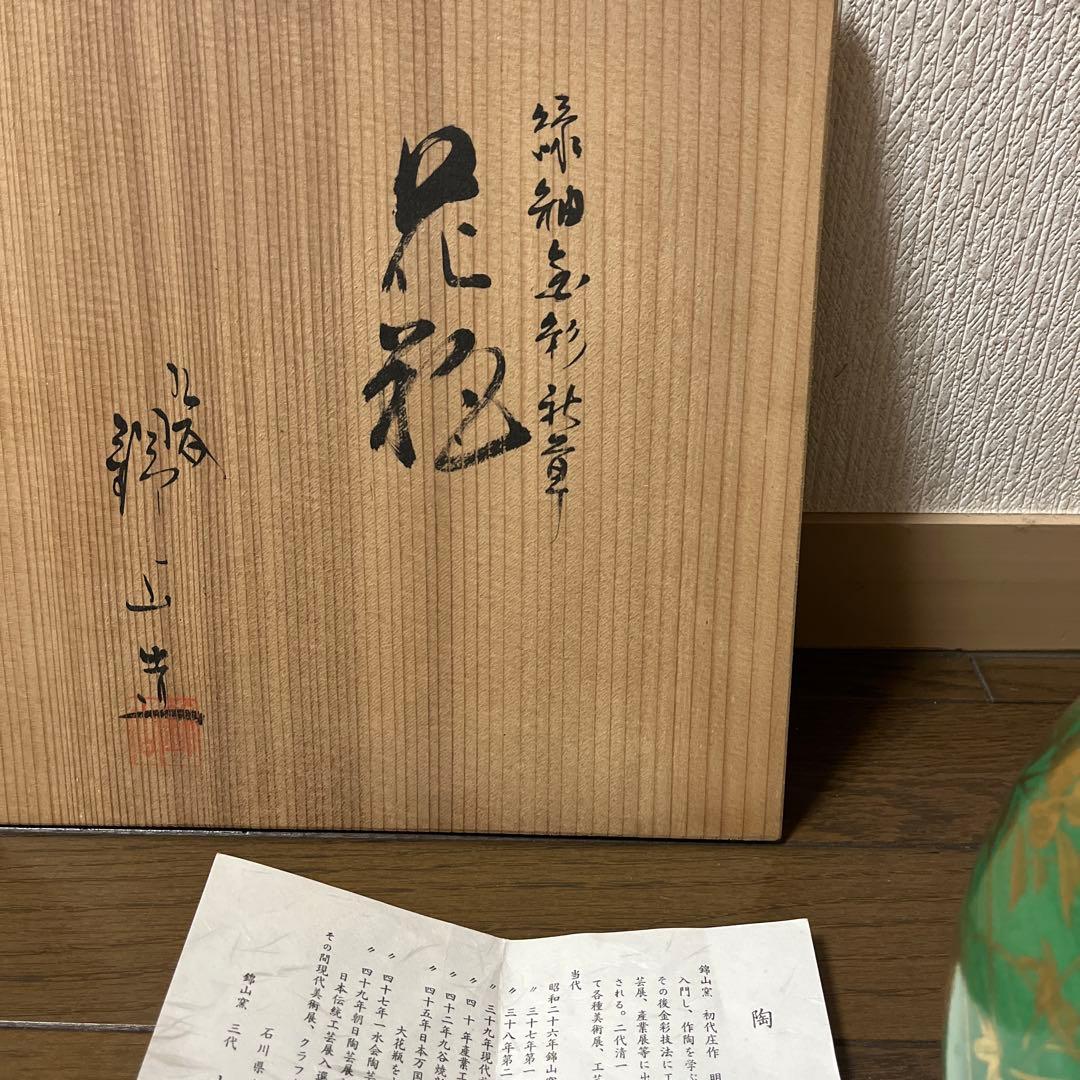 緑釉金彩秋草
花瓶
九谷
錦山造
陶
錦山窯 初代庄作 明
入門し、作陶を学ぶ
その後金彩技法に工
芸展、産業展等に出
される。二代清一
て各種美術展、工芸
当代
昭和二十六年錦山窯
〃 三十七年第一
〃 三十八年第二
〃 三十九年現代
〃 四十年産業工
〃 四十二年九谷焼
〃 四十五年日本万国
大花瓶を
〃 四十七年一水会陶芸
〃 四十九年朝日陶芸展
日本伝統工芸展入選
その間現代美術展、クラフ
石川県
錦山窯 三代